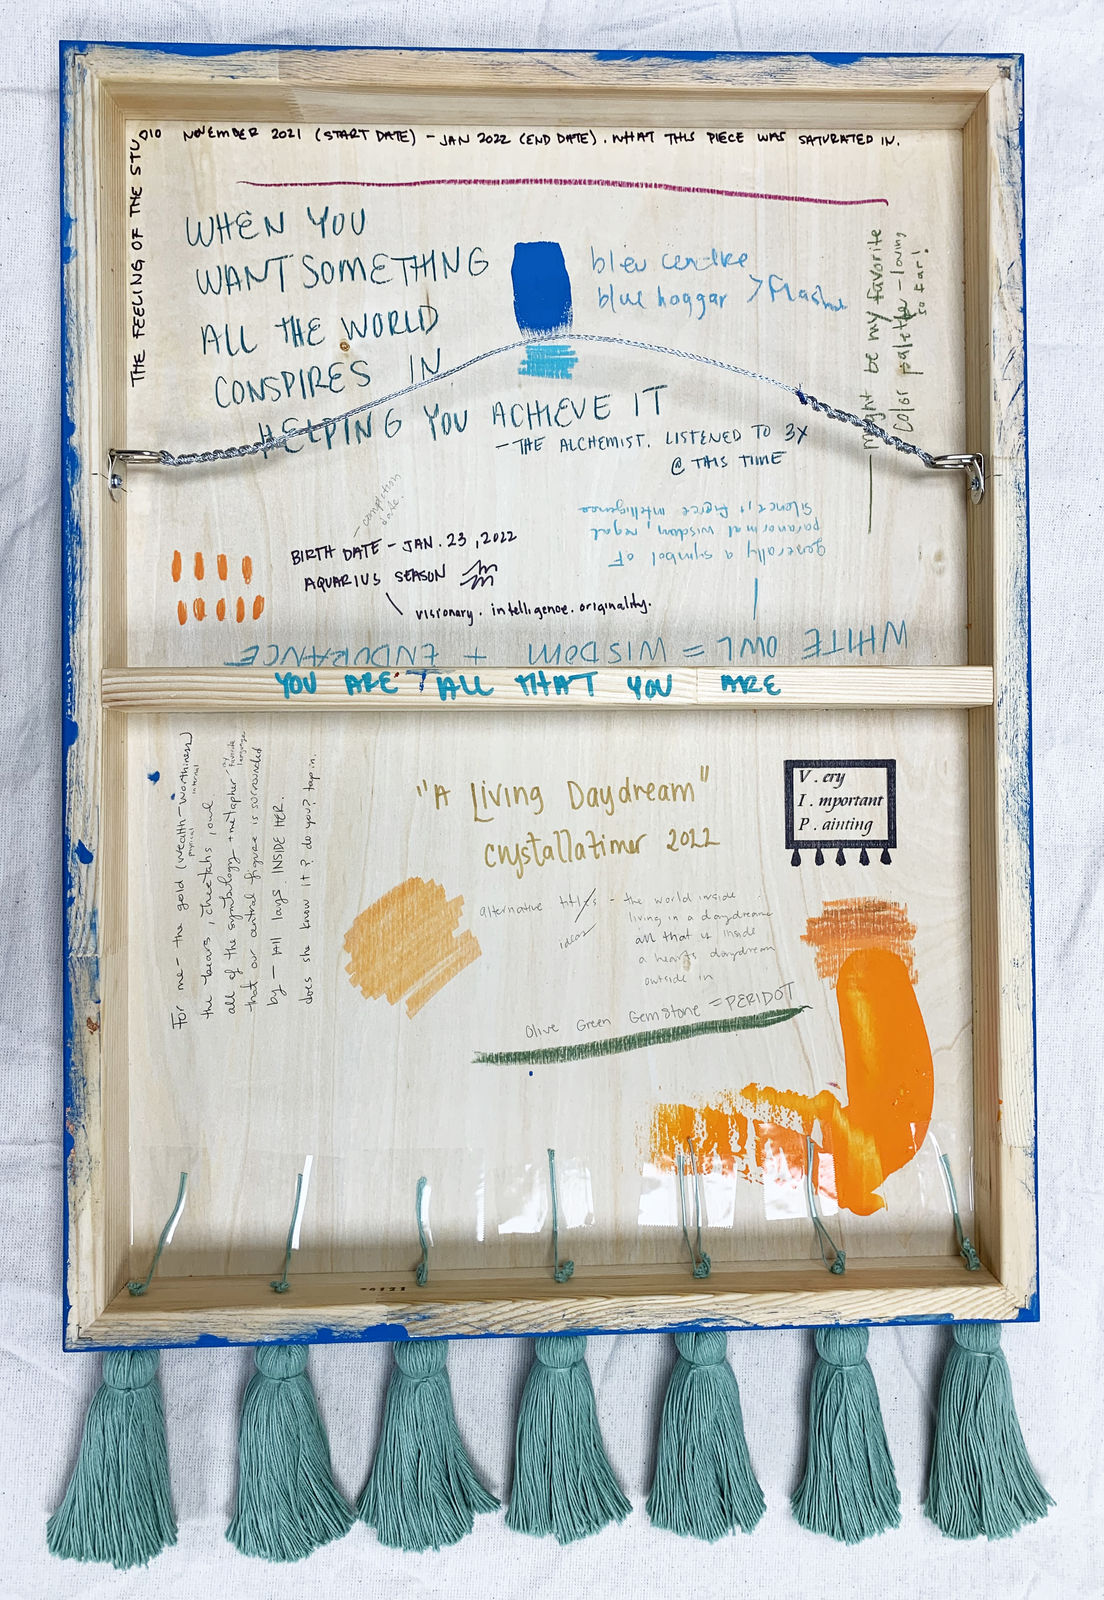 THE FEELING OF THE STUDIO NOVEMBER 2021 (START DATE) - JAN 2022 (END DATE). WHAT THIS PIECE WAS SATURATED IN.
WHEN YOU
WANT SOMETHING
ALL THE WORLD
CONSPIRES IN
HELPING YOU ACHIEVE IT
- THE ALCHEMIST. LISTENED TO 3X
@ THIS TIME
bleu cendre
blue hoggar > Flashe
might be my favorite
color palette - loving
so far!
- completion
date.
BIRTH DATE - JAN. 23, 2022
AQUARIUS SEASON
visionary. intelligence. originality.
WHITE OWL = WISDOM + ENDURANCE
generally a symbol of
paranormal wisdom, regal
silence, + fierce intelligence
YOU ARE ALL THAT YOU ARE
For me - the gold (wealth - worthiness)
physical internal
the bears, cheetahs, owl
all of the symbology + metaphor - my favorite language
that our central figure is surrounded
by - All lays INSIDE HER.
does she know it? do you? tap in.
"A Living Daydream"
crystallatimer 2022
V . ery
I . mportant
P . ainting
alternative titles - the world inside
ideas
living in a daydream
all that is inside
a hearts daydream
outside in
Olive Green Gemstone = PERIDOT